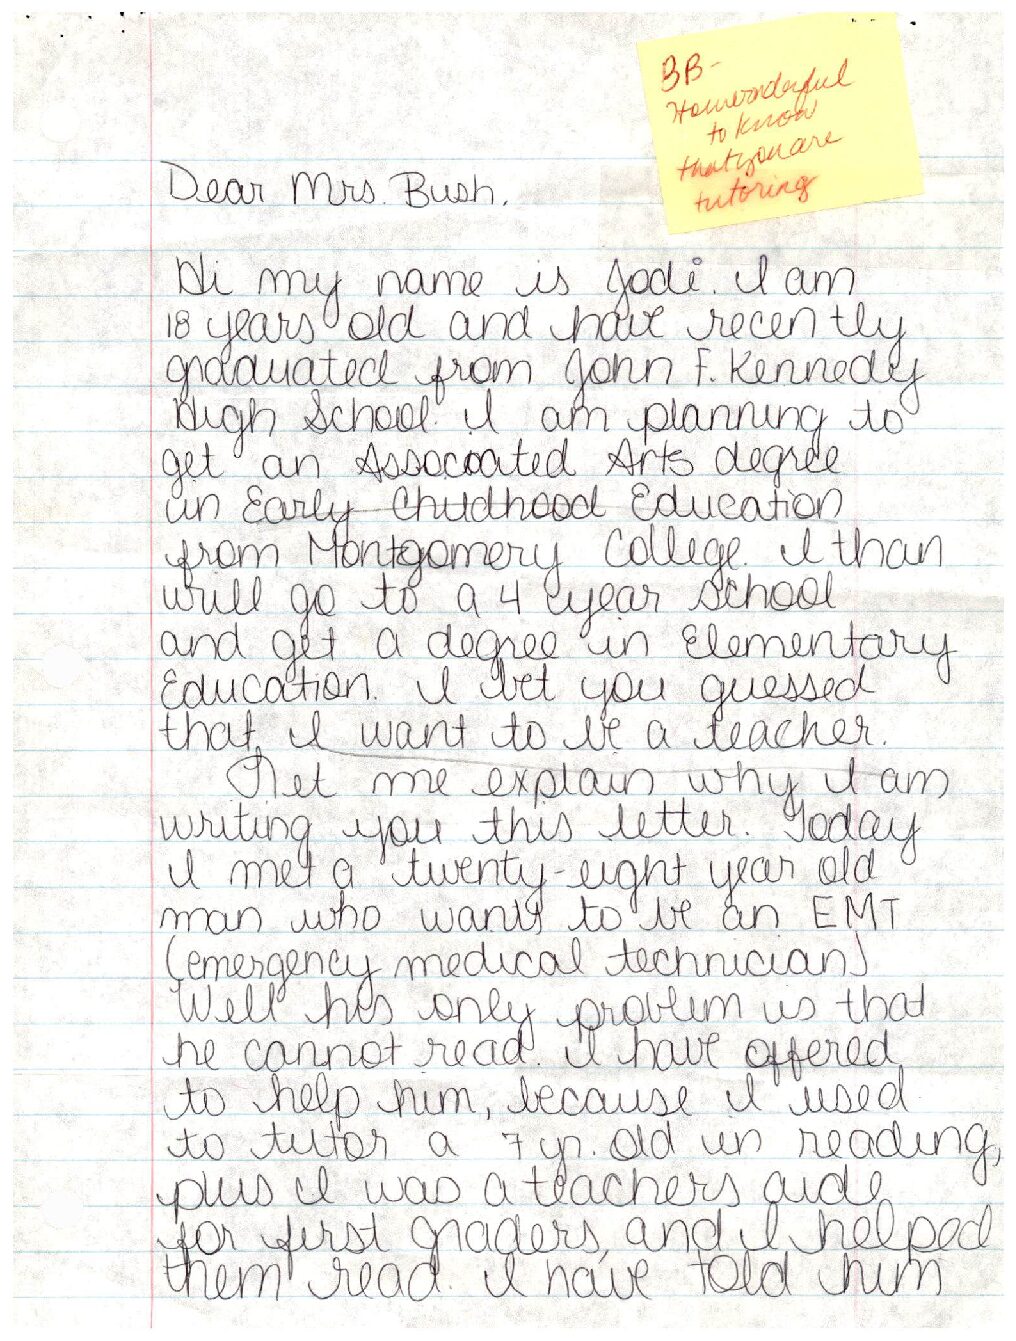 BB-
How wonderful
to know
that you are
tutoring
Dear Mrs. Bush,
Hi my name is Jodi. I am
18 years old and have recently
graduated from John F. Kennedy
High School. I am planning to
get an Assocoated Arts degree
in Early Childhood Education
from Montgomery College. I than
will go to a 4 year school
and get a degree in Elementary
Education. I bet you guessed
that, I want to be a teacher.
Let me explain why I am
writing you this letter. Today
I met a twenty-eight year old
man who wants to be an EMT
(emergency medical technician)
Well his only problem is that
he cannot read. I have offered
to help him, because I used
to tutor a 7 yr. old in reading,
plus I was a teachers aide
for first graders, and I helped
them read. I have told him